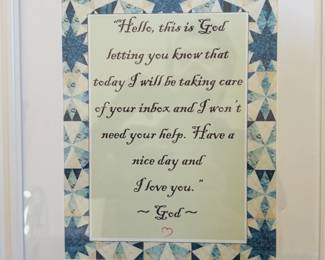 "Hello, this is God
letting you know that
today I will be taking care
of your inbox and I won't
need your help. Have a
nice day and
I love you."
~ God ~